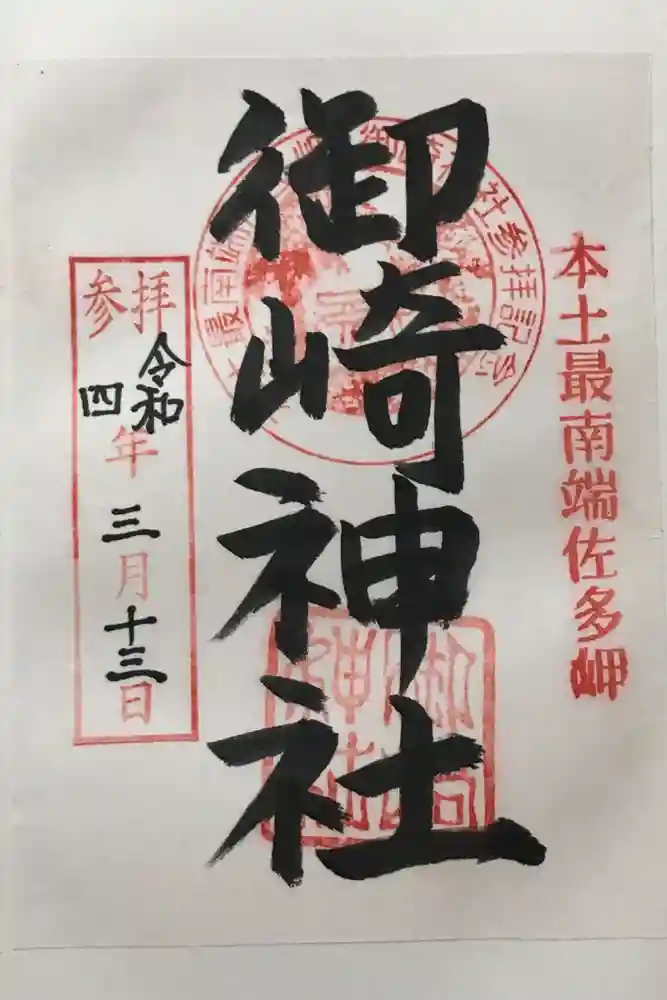 本土最南端佐多岬
御崎神社
参拝
令和
四年
三月
十三日
御崎神社